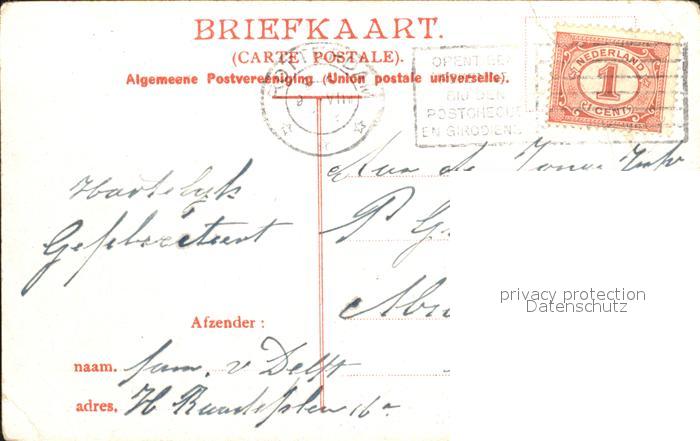 BRIEFKAART.
(CARTE POSTALE).
Algemeene Postvereeniging (Union postale universelle).
NEDERLAND
1
1 CENT
OPENT EEN
BIJ DEN
POSTCHEQUE
EN GIRODIENST
VIII
Aan de
Hartelijk
Gefeliciteerd
P G
privacy protection
Datenschutz
Afzender :
naam. fam. v Delft
adres. H 16a